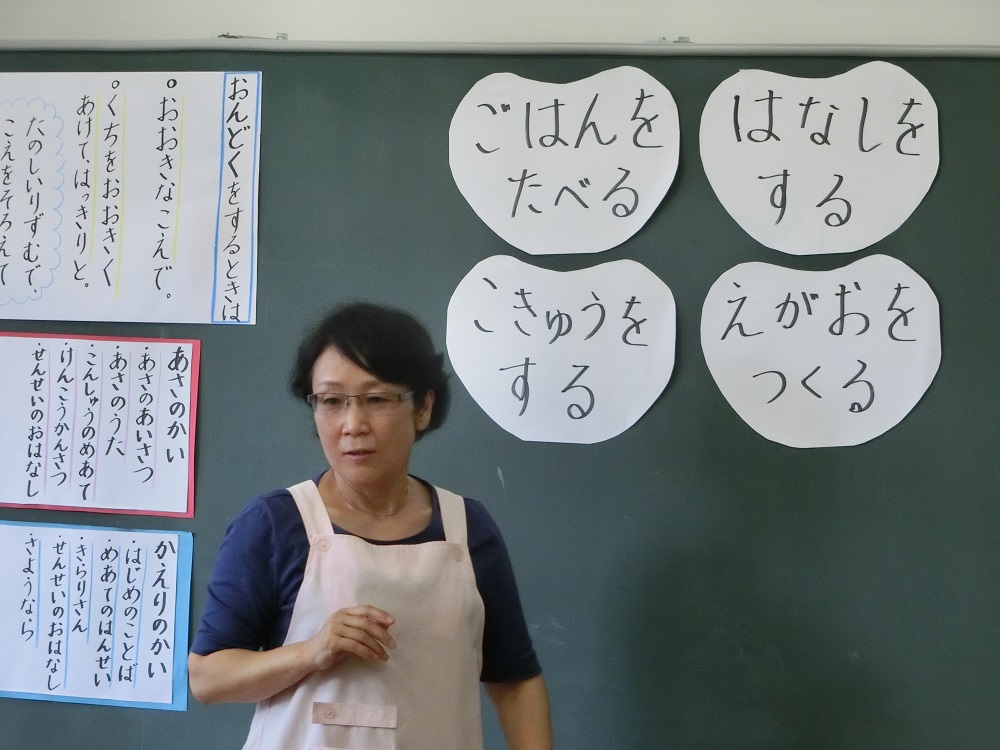 おんどくをするときは
。おおきなこえで。
。くちをおおきく
あけてはっきりと。
たのしいりずむで、
こえをそろえて
あさのかい
・あさのあいさつ
・あさのうた
・こんしゅうのめあて
・けんこうかんさつ
・せんせいのおはなし
かえりのかい
・はじめのことば
・めあてのはんせい
・きらりさん
・せんせいのおはなし
・さようなら
ごはんを
たべる
はなしを
する
こきゅうを
する
えがおを
つくる